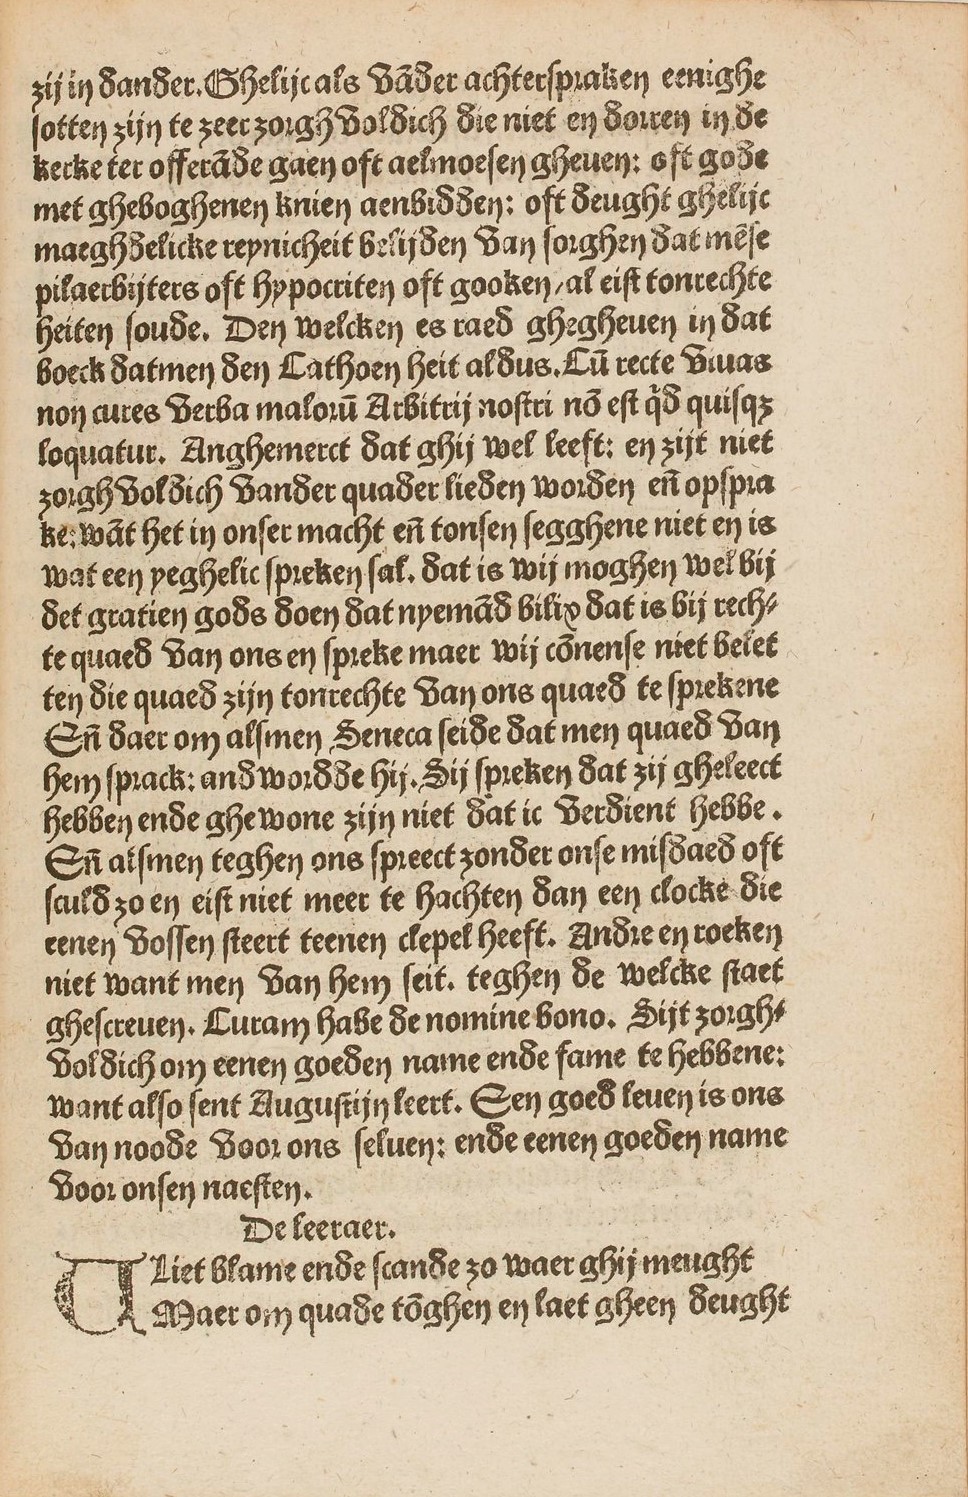 zij in dander. Ghelijc als vāder achterspraken eenighe
sotten zijn te zeer zorghvoldich die niet en dorren in de
kecke ter offerāde gaen oft aelmoesen gheuen: oft gode
met gheboghenen knien aenbidden: oft deught ghelijc
maeghdelicke reynicheit belijden van sorghen dat mēse
pilaerbijters oft hypocriten oft gooken/al eist tonrechte
heiten soude. Den welcken es raed ghegheuen in dat
boeck datmen den Cathoen heit aldus. Cū recte viuas
non cures verba malorū Arbitrij nostri nō est q̄d quisqz
loquatur. Anghemerct dat ghij wel leeft: en zijt niet
zorghvoldich vander quader lieden worden en̄ opspra
ke: wāt het in onser macht en̄ tonsen segghene niet en is
wat een yeghelic spreken sal. dat is wij moghen wel bij
det gratien gods doen dat nyemād bilix dat is bij rech/
te quaed van ons en spreke maer wij cōnense niet belet
ten die quaed zijn tonrechte van ons quaed te sprekene
En̄ daer om alsmen Seneca seide dat men quaed van
hem sprack: andwordde hij. Sij spreken dat zij gheleect
hebben ende ghewone zijn niet dat ic verdient hebbe.
En̄ alsmen teghen ons spreect zonder onse misdaed oft
sculd zo en eist niet meer te hachten dan een clocke die
eenen vossen steert teenen clepel heeft. Andre en roeken
niet want men van hem seit. teghen de welcke staet
ghescreuen. Curam habe de nomine bono. Sijt zorgh/
voldich om eenen goeden name ende fame te hebbene:
want also sent Augustijn leert. Een goed leuen is ons
van noode voor ons seluen: ende eenen goeden name
voor onsen naesten.
De leeraer.
VLiet blame ende scande zo waer ghij meught
Maer om quade tōghen en laet gheen deught